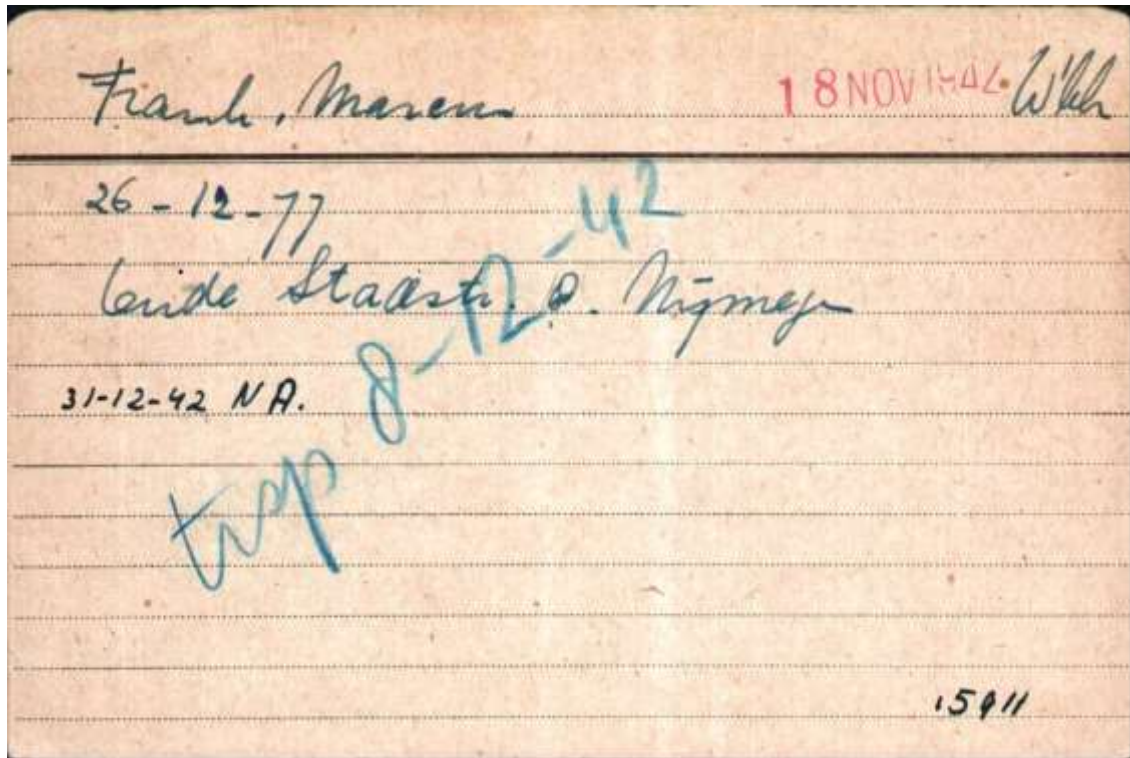 Frank, Marcus 18 NOV 1942
26-12-77
Stadstr. 8. Nijmegen
31-12-42 NA.
trsp 8-12-42